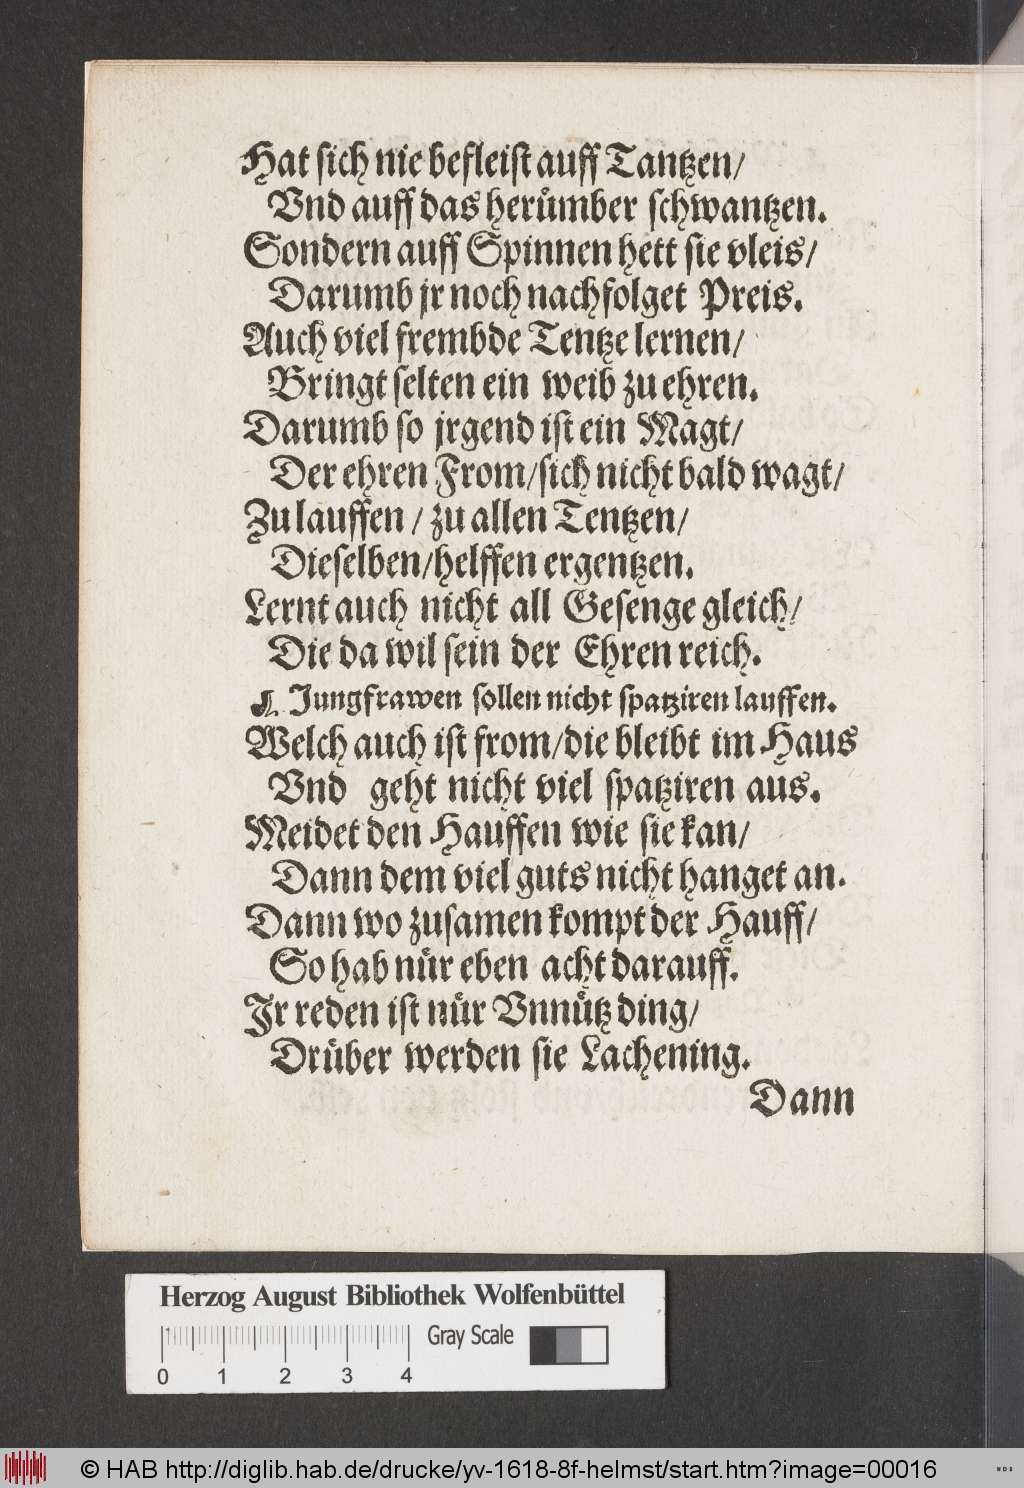 Hat sich nie befleist auff Tantzen/
Vnd auff das herümber schwantzen.
Sondern auff Spinnen hett sie vleis/
Darumb jr noch nachfolget Preis.
Auch viel frembde Tentze lernen/
Bringt selten ein weib zu ehren.
Darumb so jrgend ist ein Magt/
Der ehren From/sich nicht bald wagt/
Zu lauffen / zu allen Tentzen/
Dieselben/helffen ergentzen.
Lernt auch nicht all Gesenge gleich/
Die da wil sein der Ehren reich.
☙ Jungfrawen sollen nicht spatziren lauffen.
Welch auch ist from/die bleibt im Haus
Vnd geht nicht viel spatziren aus.
Meidet den Hauffen wie sie kan/
Dann dem viel guts nicht hanget an.
Dann wo zusamen kompt der Hauff/
So hab nür eben acht darauff.
Jr reden ist nür Vnnütz ding/
Drüber werden sie Lachening.
Dann
Herzog August Bibliothek Wolfenbüttel
Gray Scale
0 1 2 3 4
© HAB http://diglib.hab.de/drucke/yv-1618-8f-helmst/start.htm?image=00016